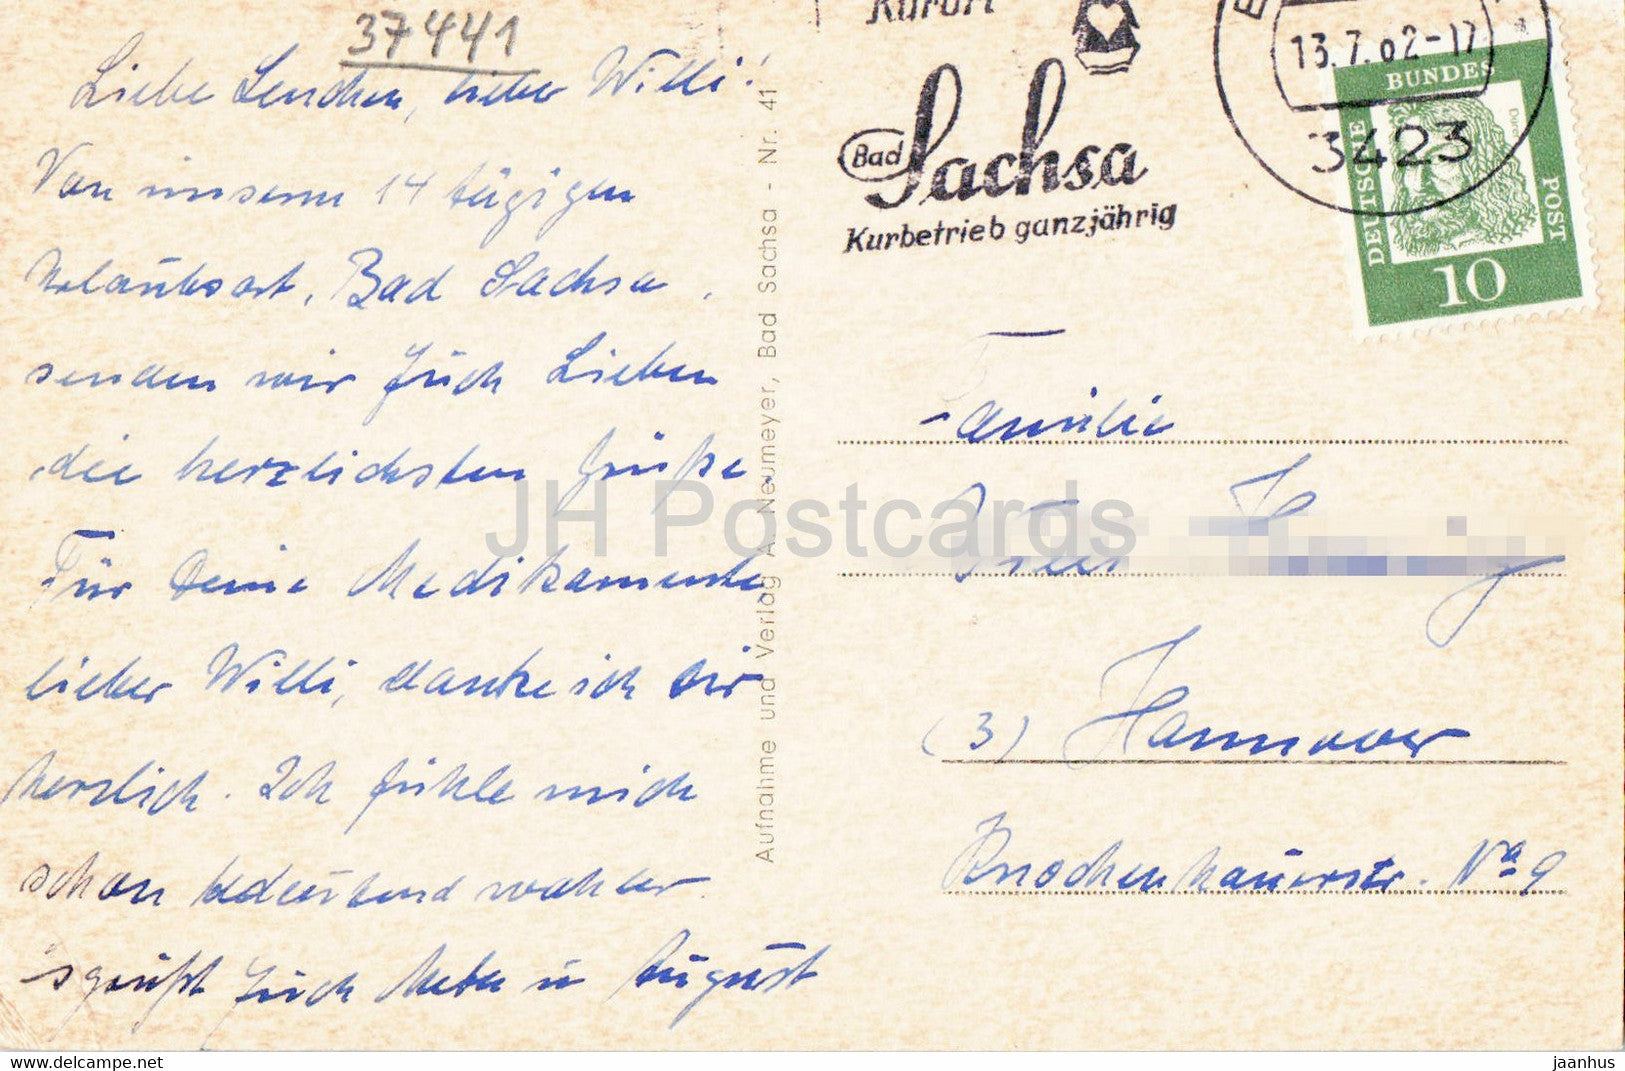 37441
Liebe Lenchen, lieber Willi!
Von unserm 14 tägigen
Urlaubsort, Bad Sachsa,
senden wir Euch Lieben
die herzlichsten Grüße
Für Deine Medikamente,
lieber Willi, danke ich Dir
herzlich. Ich fühle mich
schon bedeutend wohler.
's grüßt Euch Meta u August
Aufnahme und Verlag A. Neumeyer, Bad Sachsa - Nr. 41
Kurort
Bad Sachsa
Kurbetrieb ganzjährig
13.7.62-17
3423
DEUTSCHE BUNDESPOST
10
Familie
(3) Hannover
Knochenhauerstr. No 9
JH Postcards
https://www.hippostcard.com/store/jh-postcards
jaanhus